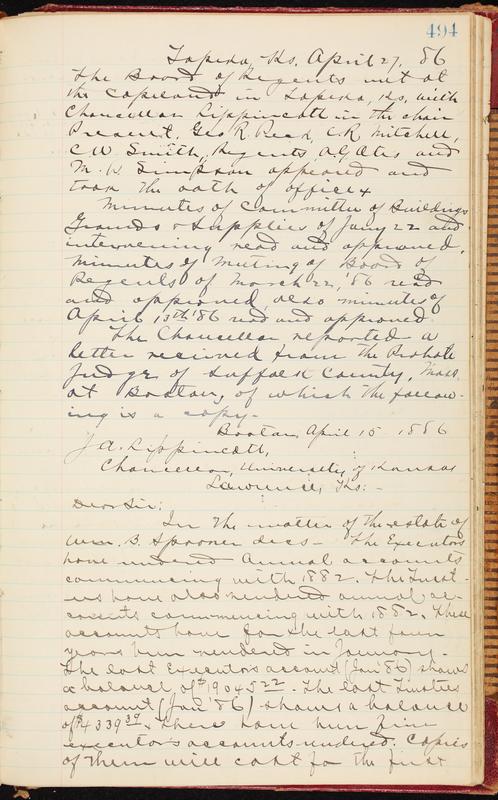 494
Topeka, Ks. April 27, 86
The Board of Regents met at
the Copeland in Topeka, Ks, with
Chancellor Lippincott in the chair
Present, Geo R. Peck, C.R. Mitchell,
C W Smith, Regents, A.G. Otis and
M. W. Simpson appeared and
took the oath of office
Minutes of Committee of Buildings
Grounds & Supplies of Jany 22 and
intervening read and approved.
Minutes of meeting of Board of
Regents of March 22, '86 read
and approved also minutes of
April 13th '86 read and approved
The Chancellor reported a
letter received from the Probate
Judge of Suffolk County, Mass
at Boston, of which the follow-
ing is a copy.
Boston, April 15 1886
J A. Lippincott,
Chancellor, University of Kansas
Lawrence, Ks:-
Dear Sir:
In the matter of the estate of
Wm. B. Spooner decs- The Executors
have rendered Annual accounts
commencing with 1882. The Trust-
ees have also rendered annual ac-
counts commencing with 1882. These
accounts have for the last four
years been rendered in January.
The last Executors account (Jan '86) shows
a balance of $19045 22. The last Trustees
account (Jan, '86) shows a balance
of $4339 37. There have been five
executors accounts rendered. Copies
of them will cost for the first